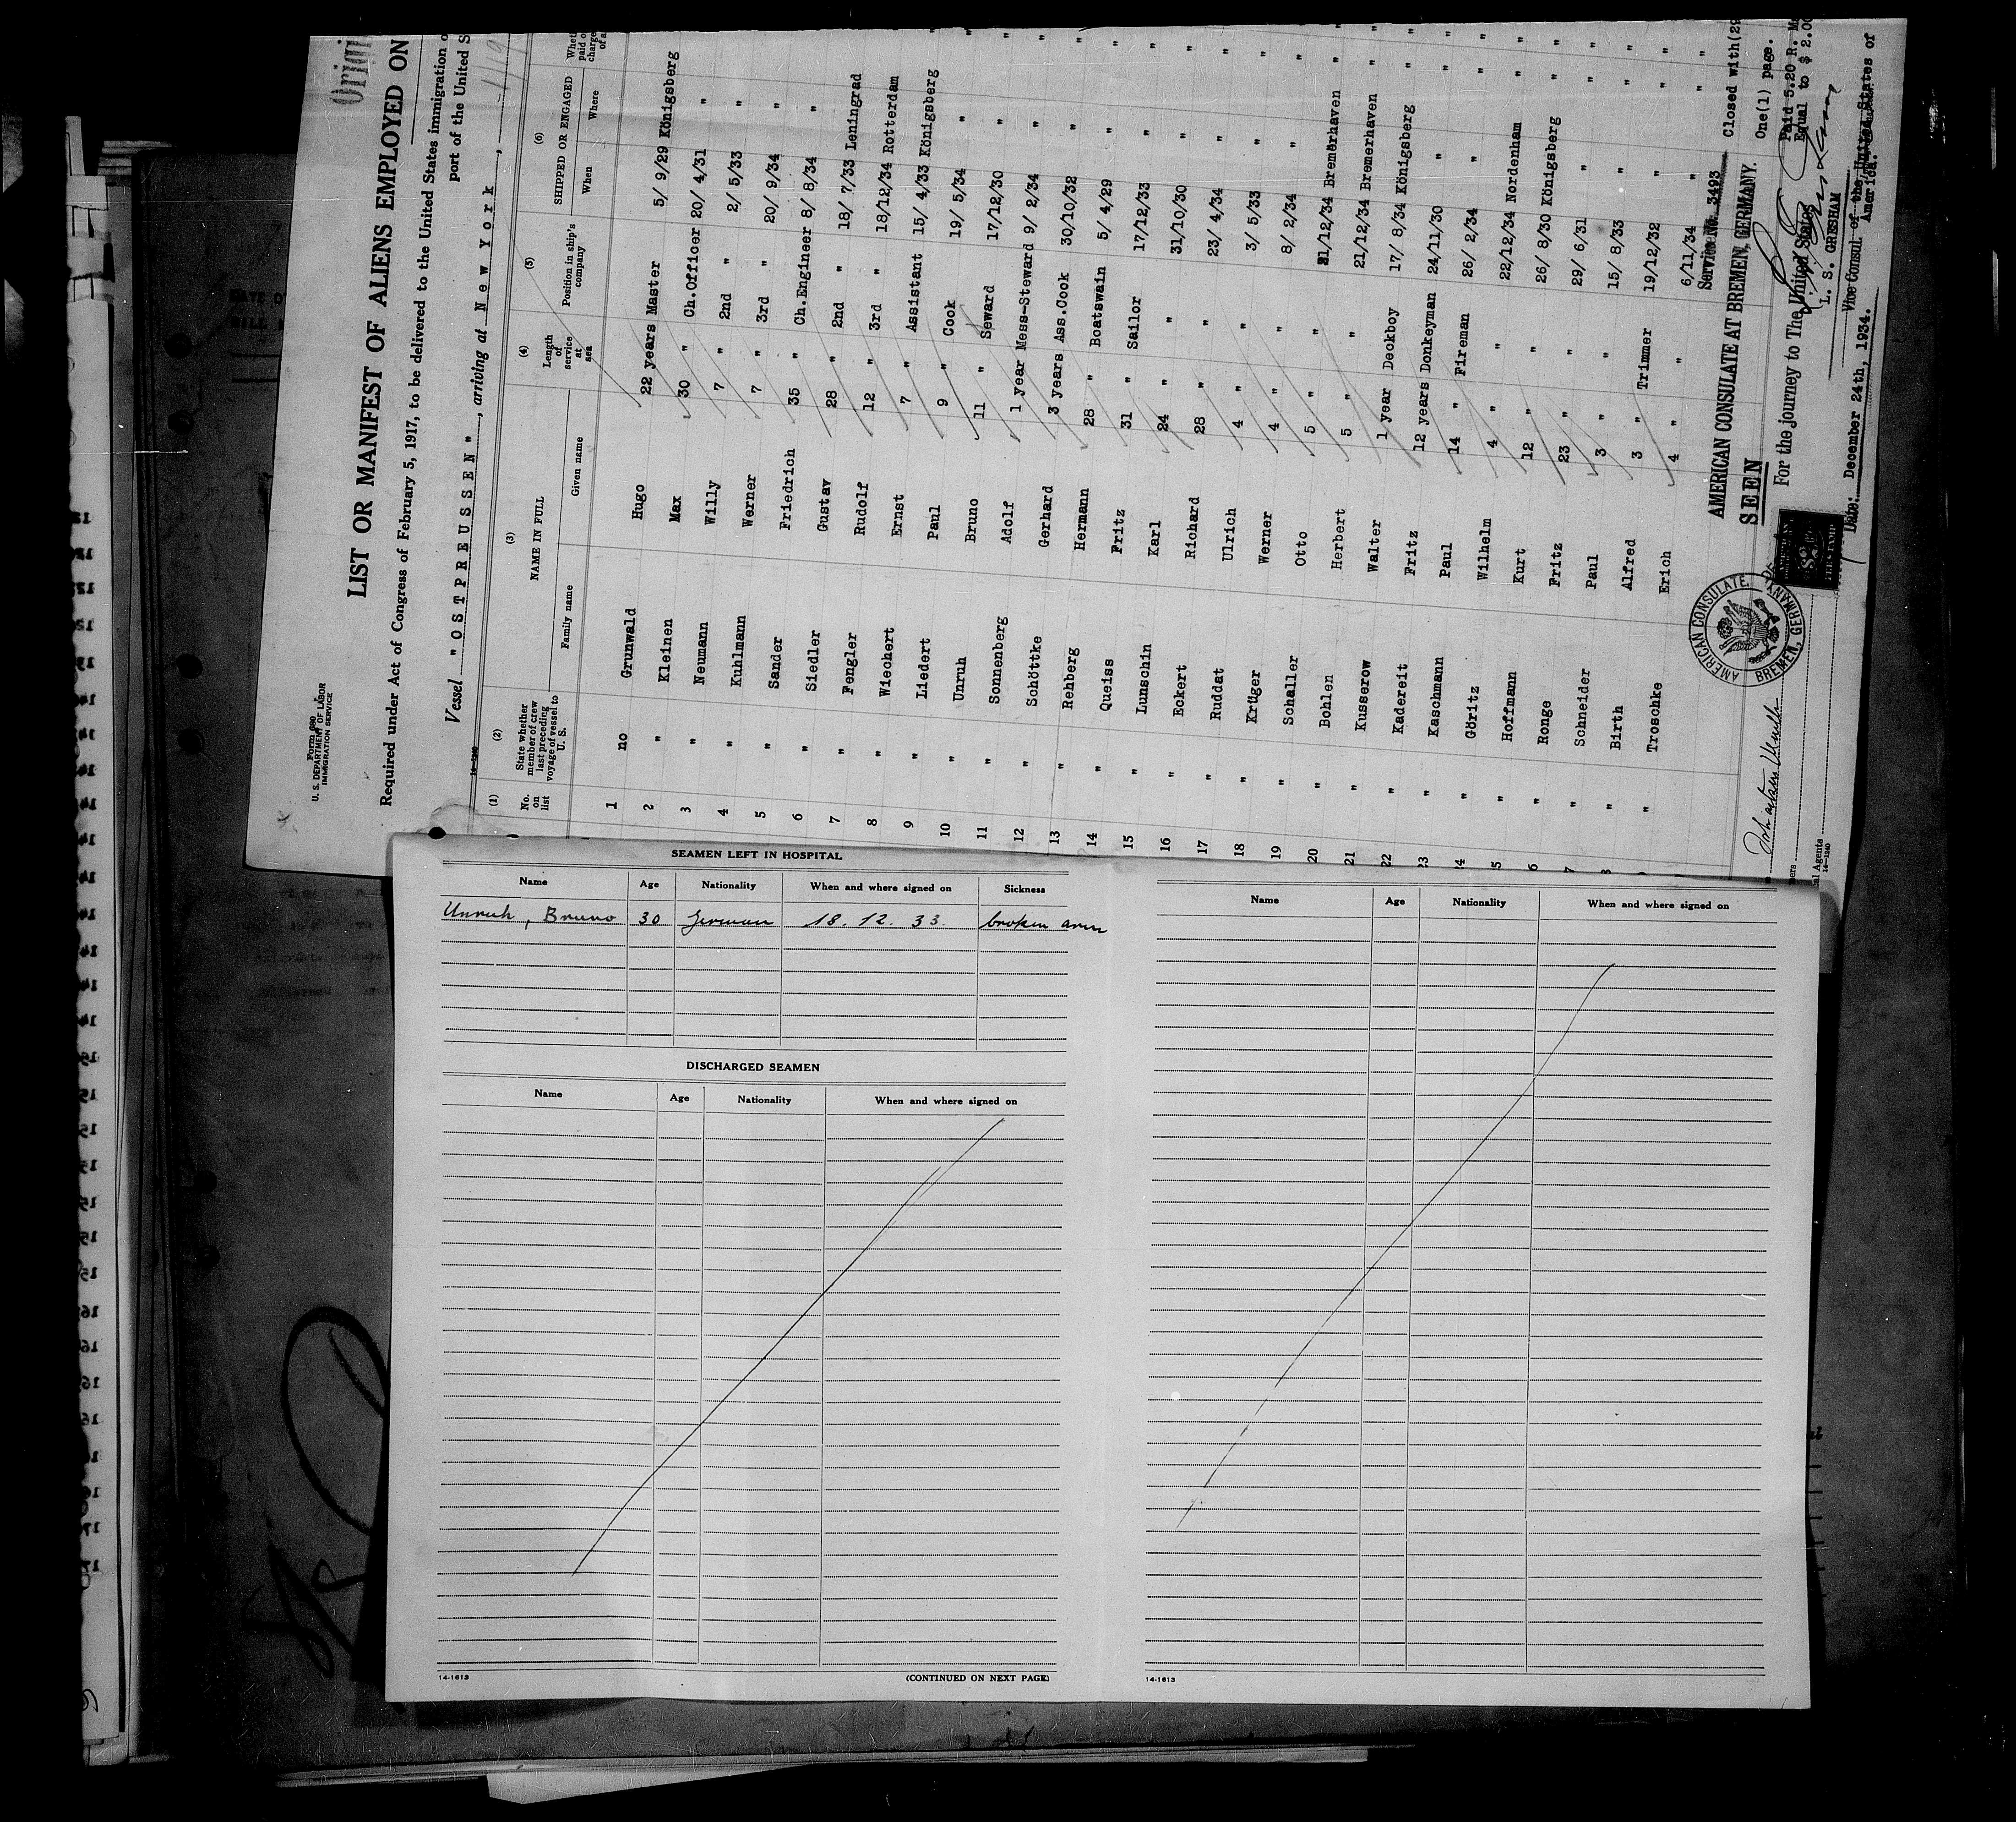 Form 680
U. S. DEPARTMENT OF LABOR
IMMIGRATION SERVICE
LIST OR MANIFEST OF ALIENS EMPLOYED ON
Required under Act of Congress of February 5, 1917, to be delivered to the United States immigration
port of the United
Vessel " O S T P R E U S S E N ", arriving at N e w Y o r k ,
14-1240
(1) (2) (3) (4) (5) (6)
No. on list
State whether member of crew last preceding voyage of vessel to U. S.
NAME IN FULL
Family name Given name
Length of service at sea
Position in ship's company
SHIPPED OR ENGAGED
When Where
1 no Grunwald Hugo 22 years Master 5/ 9/29 Königsberg
2 " Kleinen Max 30 " Ch.Officer 20/ 4/31 "
3 " Neumann Willy 7 " 2nd " 2/ 5/33 "
4 " Kuhlmann Werner 7 " 3rd " 20/ 9/34 "
5 " Sander Friedrich 35 " Ch.Engineer 8/ 8/34 "
6 " Siedler Gustav 28 " 2nd " 18/ 7/33 Leningrad
7 " Fengler Rudolf 12 " 3rd " 18/12/34 Rotterdam
8 " Wiechert Ernst 7 " Assistant 15/ 4/33 Königsberg "
9 " Liedert Paul 9 " Cook 19/ 5/34 " "
10 " Unruh Bruno 11 " Seward 17/12/30 " "
11 " Sonnenberg Adolf 1 year Mess-Steward 9/ 2/34 " "
12 " Schöttke Gerhard 3 years Ass.Cook 30/10/32 " "
13 " Rehberg Hermann 28 " Boatswain 5/ 4/29 " "
14 " Queiss Fritz 31 " Sailor 17/12/33 " "
15 " Lunschin Karl 24 " " 31/10/30 " "
16 " Eckert Richard 28 " " 23/ 4/34 " "
17 " Ruddat Ulrich 4 " " 3/ 5/33 " "
18 " Krüger Werner 4 " " 8/ 2/34 " "
19 " Schaller Otto 5 " " 21/12/34 Bremerhaven " "
20 " Bohlen Herbert 5 " " 21/12/34 Bremerhaven " "
21 " Kusserow Walter 1 year Deckboy 17/ 8/34 Königsberg " "
22 " Kadereit Fritz 12 years Donkeyman 24/11/30 " " "
23 " Kaschmann Paul 14 " Fireman 26/ 2/34 " " "
4 " Göritz Wilhelm 4 " " 22/12/34 Nordenham " "
5 " Hoffmann Kurt 12 " " 26/ 8/30 Königsberg " "
6 " Ronge Fritz 23 " " 29/ 6/31 " " "
7 " Schneider Paul 3 " " 15/ 8/33 " " "
8 " Birth Alfred 3 " Trimmer 19/12/32 " " "
" Troschke Erich 4 " " 6/11/34 " " "
Service No. 3493 Closed with(29
AMERICAN CONSULATE AT BREMEN, GERMANY. One(1) page.
SEEN
For the journey to The United States
Paid 5.20 R. M
Equal to $ 2.00
L. S. GRESHAM
Vice Consul of the United States of America.
Date: December 24th, 1934.
AMERICAN CONSULATE, BREMEN, GERMANY
14-1240
SEAMEN LEFT IN HOSPITAL
Name Age Nationality When and where signed on Sickness
Unruh, Bruno 30 German 18. 12. 33. broken arm
DISCHARGED SEAMEN
Name Age Nationality When and where signed on
14-1613
(CONTINUED ON NEXT PAGE)
Name Age Nationality When and where signed on
14-1613